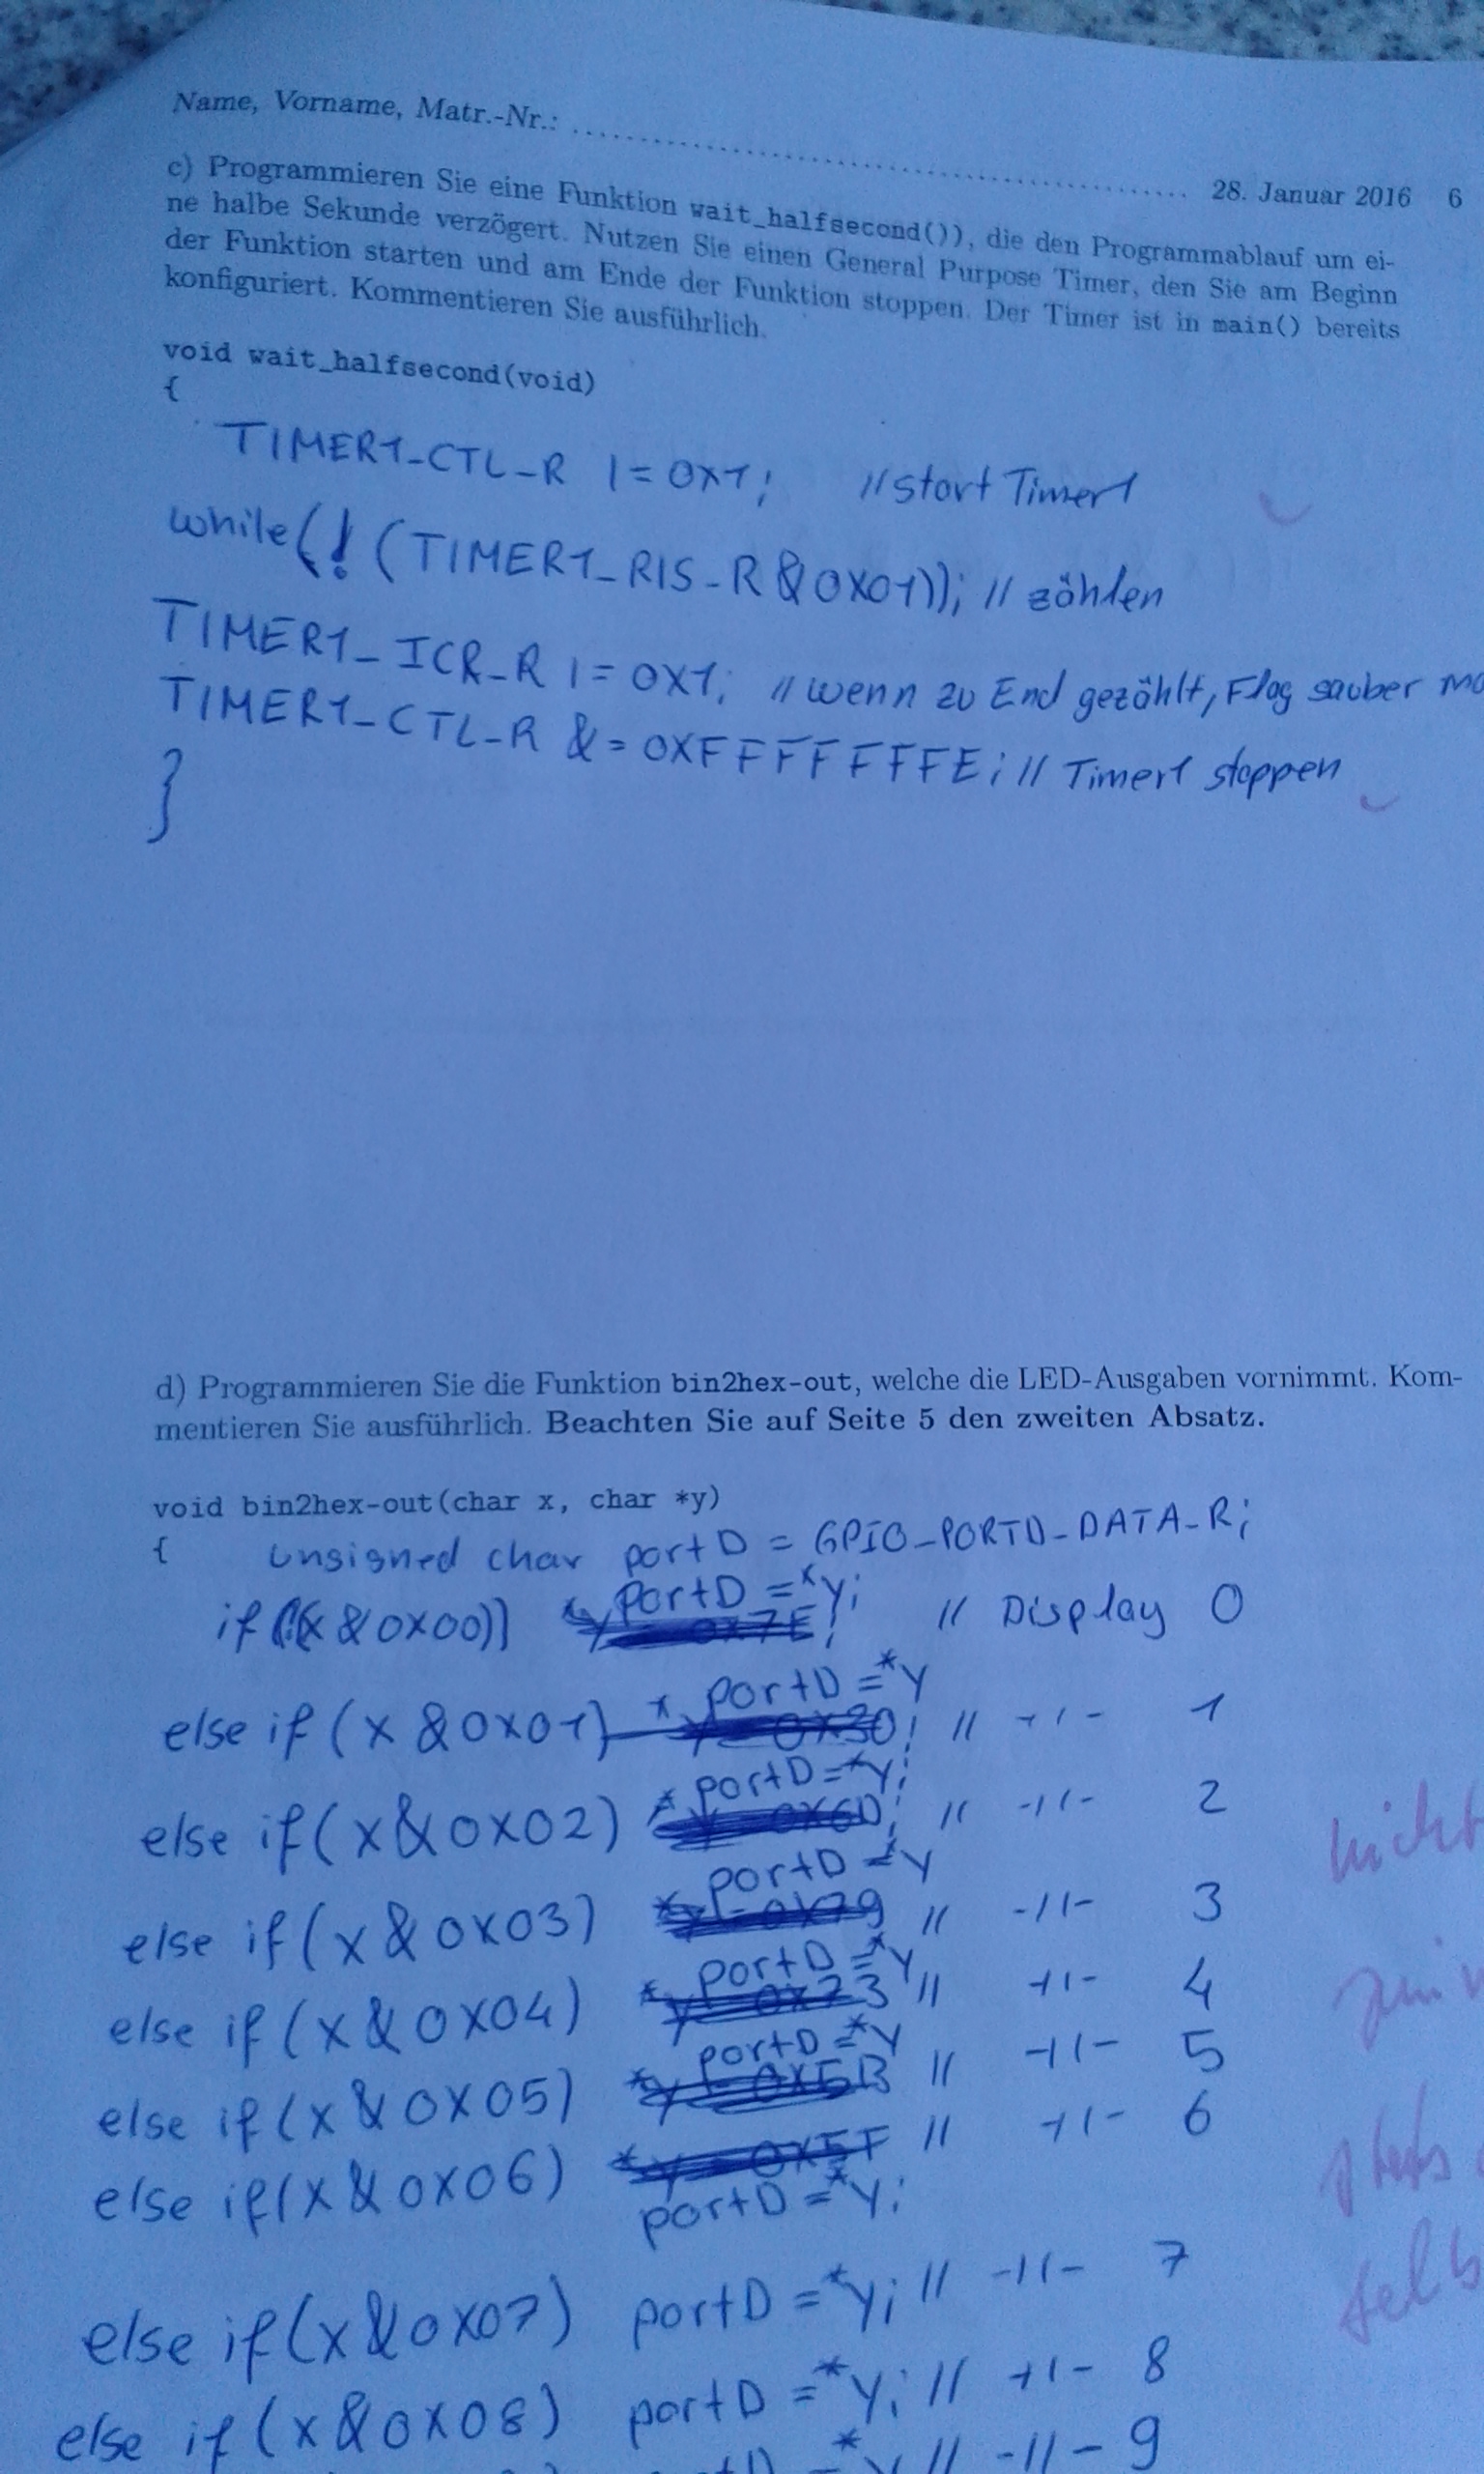 Name, Vorname, Matr.-Nr.: ........................................ 28. Januar 2016 6
c) Programmieren Sie eine Funktion wait_halfsecond()), die den Programmablauf um ei-
ne halbe Sekunde verzögert. Nutzen Sie einen General Purpose Timer, den Sie am Beginn
der Funktion starten und am Ende der Funktion stoppen. Der Timer ist in main() bereits
konfiguriert. Kommentieren Sie ausführlich.
void wait_halfsecond(void)
{
TIMER1_CTL_R |= 0x1; // start Timer1
while(!(TIMER1_RIS_R & 0x01)); // zählen
TIMER1_ICR_R |= 0x1; // wenn zu End gezählt, Flag sauber
TIMER1_CTL_R &= 0XFFFFFFFE; // Timer1 stoppen
}
d) Programmieren Sie die Funktion bin2hex-out, welche die LED-Ausgaben vornimmt. Kom-
mentieren Sie ausführlich. Beachten Sie auf Seite 5 den zweiten Absatz.
void bin2hex-out(char x, char *y)
{ unsigned char portD = GPIO_PORTD_DATA_R;
if((x & 0x00)) portD = *y; // Display 0
else if (x & 0x01) portD = *y; // -11- 1
else if (x & 0x02) portD = *y; // -11- 2
else if (x & 0x03) portD = *y // -11- 3
else if (x & 0x04) portD = *y // -11- 4
else if (x & 0x05) portD = *y // -11- 5
else if (x & 0x06) portD = *y; // -11- 6
else if (x & 0x07) portD = *y; // -11- 7
else if (x & 0x08) portD = *y; // -11- 8
// -11- 9